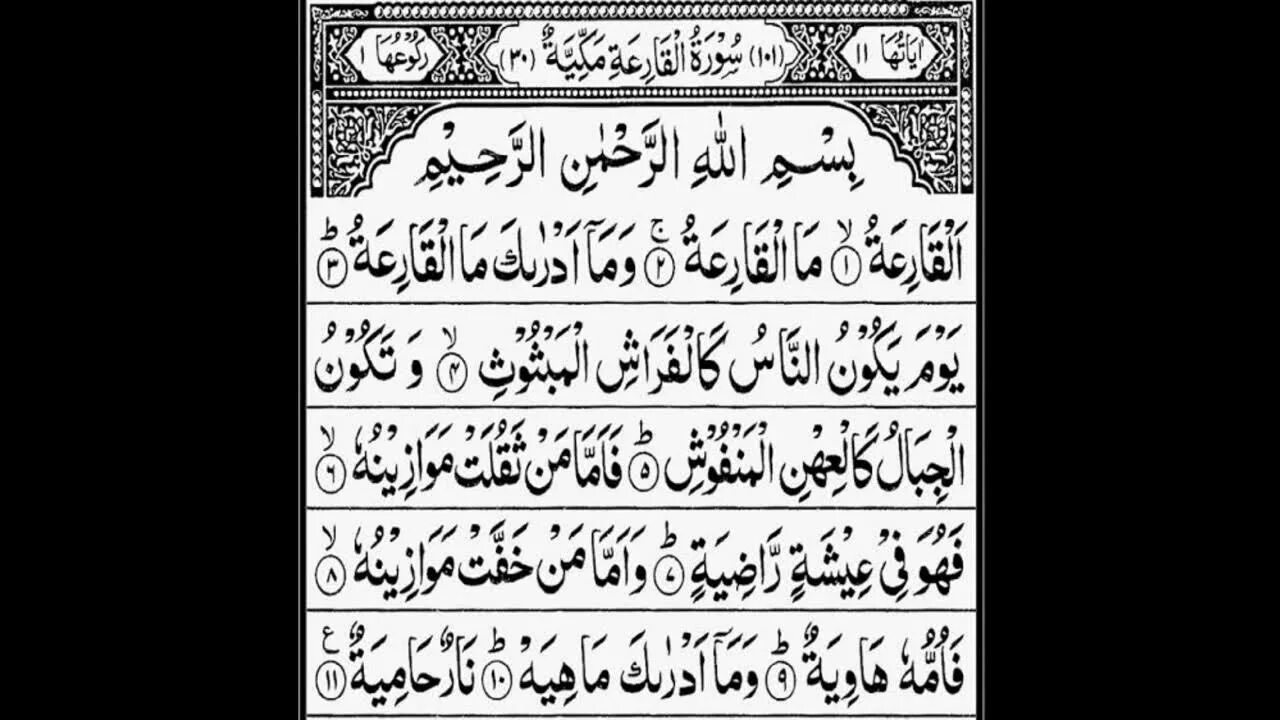 اٰيَاتُهَا ١١ (١٠١) سُوْرَةُ الْقَارِعَةِ مَكِّيَّةٌ (٣٠) رُكُوْعُهَا ١
بِسْمِ اللّٰهِ الرَّحْمٰنِ الرَّحِيْمِ
اَلْقَارِعَةُ ۙ﴿١﴾ مَا الْقَارِعَةُ ۚ﴿٢﴾ وَمَاۤ اَدْرٰىكَ مَا الْقَارِعَةُ ؕ﴿٣﴾
يَوْمَ يَكُوْنُ النَّاسُ كَالْفَرَاشِ الْمَبْثُوْثِ ۙ﴿۴﴾ وَ تَكُوْنُ
الْجِبَالُ كَالْعِهْنِ الْمَنْفُوْشِ ؕ﴿۵﴾ فَاَمَّا مَنْ ثَقُلَتْ مَوَازِيْنُهٗ ۙ﴿۶﴾
فَهُوَ فِيْ عِيْشَةٍ رَّاضِيَةٍ ؕ﴿۷﴾ وَاَمَّا مَنْ خَفَّتْ مَوَازِيْنُهٗ ۙ﴿۸﴾
فَاُمُّهٗ هَاوِيَةٌ ؕ﴿۹﴾ وَمَاۤ اَدْرٰىكَ مَا هِيَهْ ؕ﴿۱۰﴾ نَارٌ حَامِيَةٌ ﴿۱۱﴾ ع